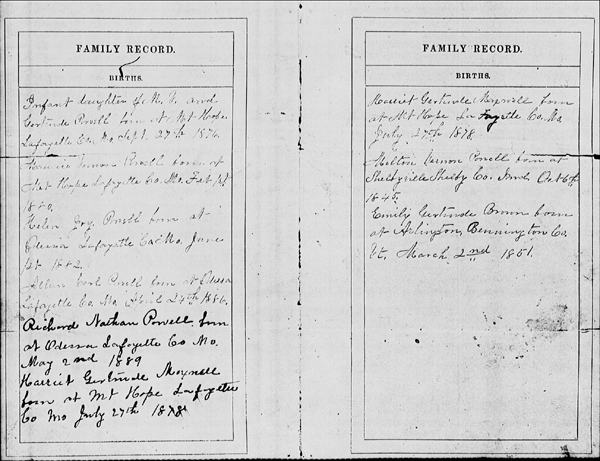 FAMILY RECORD.
BIRTHS.
Infant daughter of M. V. and
Gertrude Powell born at Mt Hope
Lafayette Co. Mo Sept. 27th 1876.
Vernon Powell born at
Mt Hope Lafayette Co. Mo. Feb 1st
1880.
Helen Joy Powell born at
Odessa Lafayette Co. Mo. June
1st 1882.
Earl Powell born at Odessa
Lafayette Co. Mo April 24th 1886.
Richard Nathan Powell born
at Odessa Lafayette Co Mo.
May 2nd 1889
Harriet Gertrude Meynell
born at Mt Hope Lafayette
Co Mo July 27th 1878
FAMILY RECORD.
BIRTHS.
Harriet Gertrude Meynell born
at Mt Hope La Fayette Co. Mo
July 27th 1878
Milton Vernon Powell born at
Shelbyville Shelby Co. Ind Oct 6th
1845.
Emily Gertrude Brown born
at Arlington, Bennington Co.
Vt. March 2nd 1851.